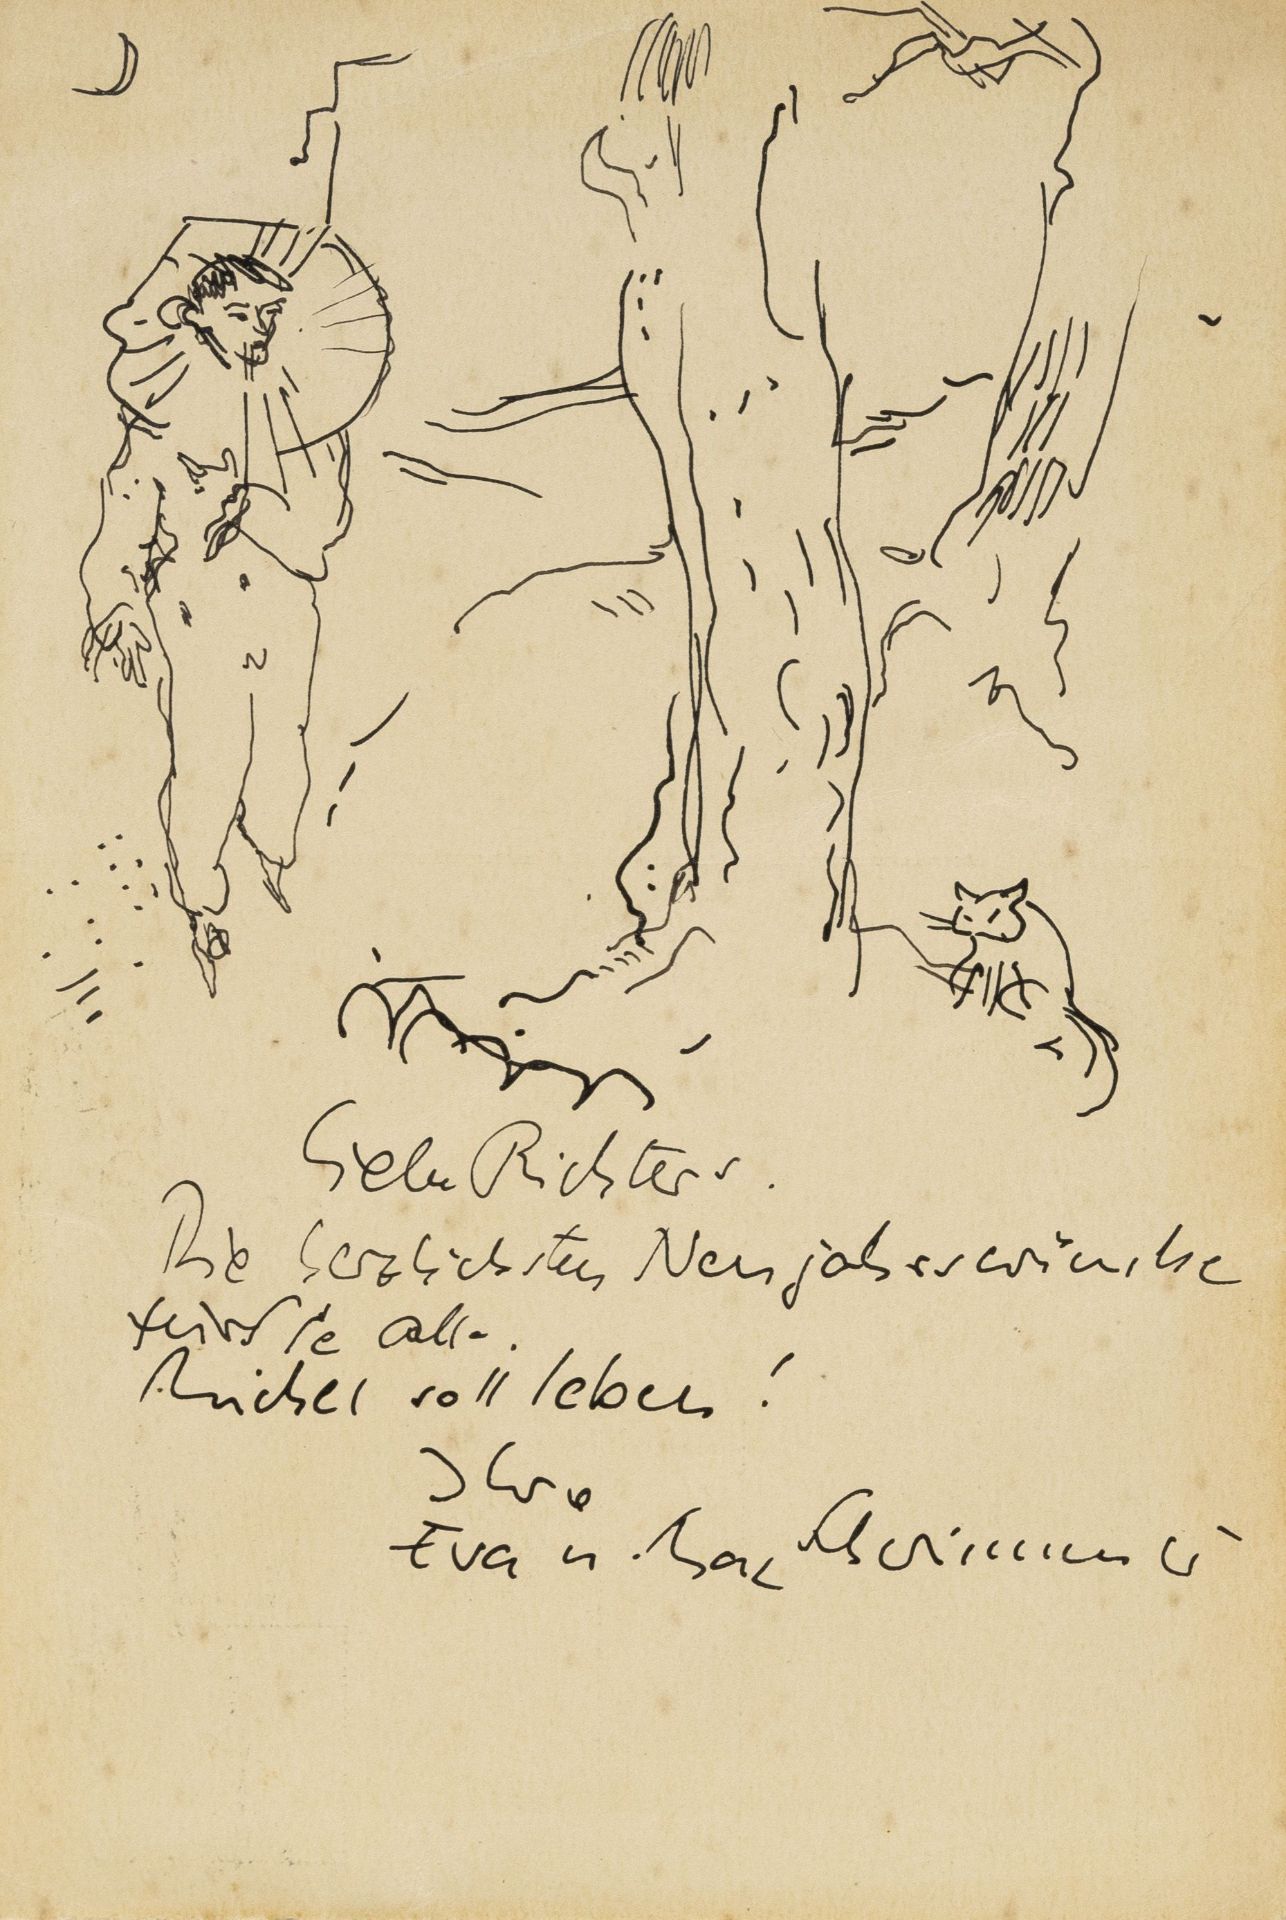 Liebe Richters.
Die herzlichsten Neujahrswünsche
für Sie alle.
Michel soll leben!
Ihre
Eva u. Max Schwimmer